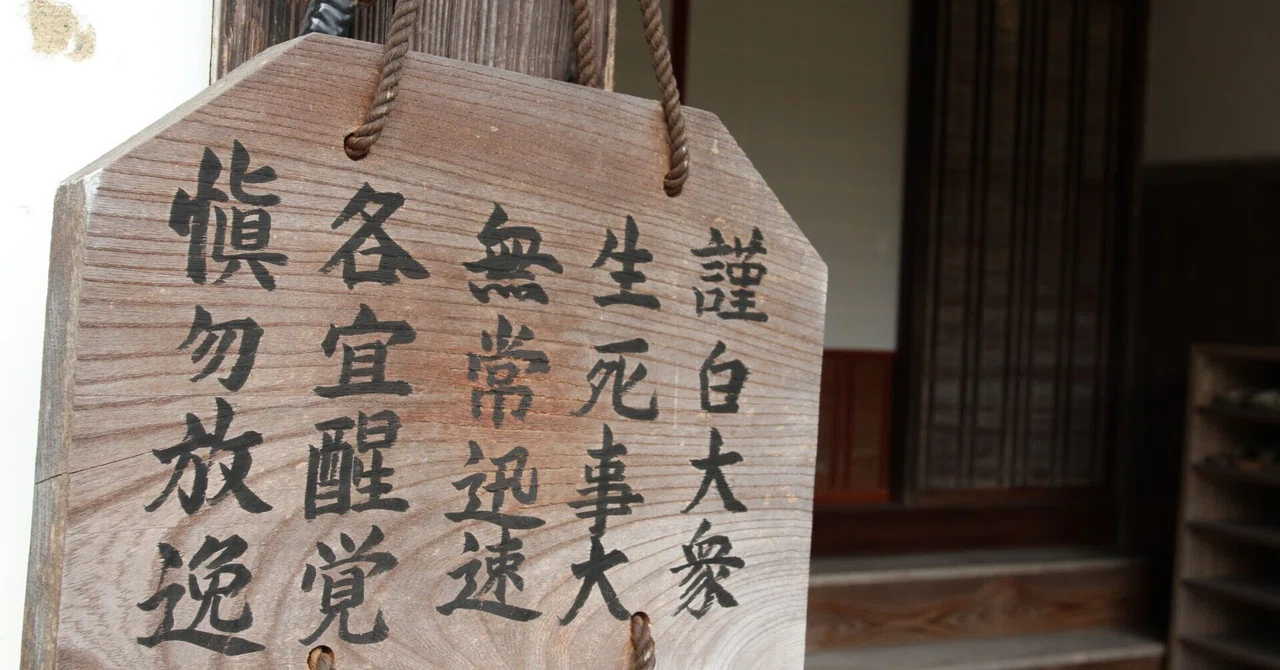 謹白大衆
生死事大
無常迅速
各宜醒覚
慎勿放逸